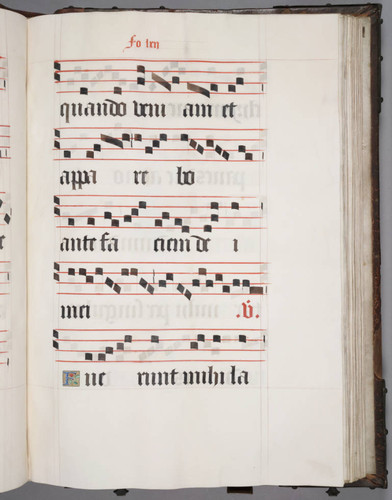 quando veni am et
appa re bo
ante fa ciem de i
mei .V.
Fue runt mihi la